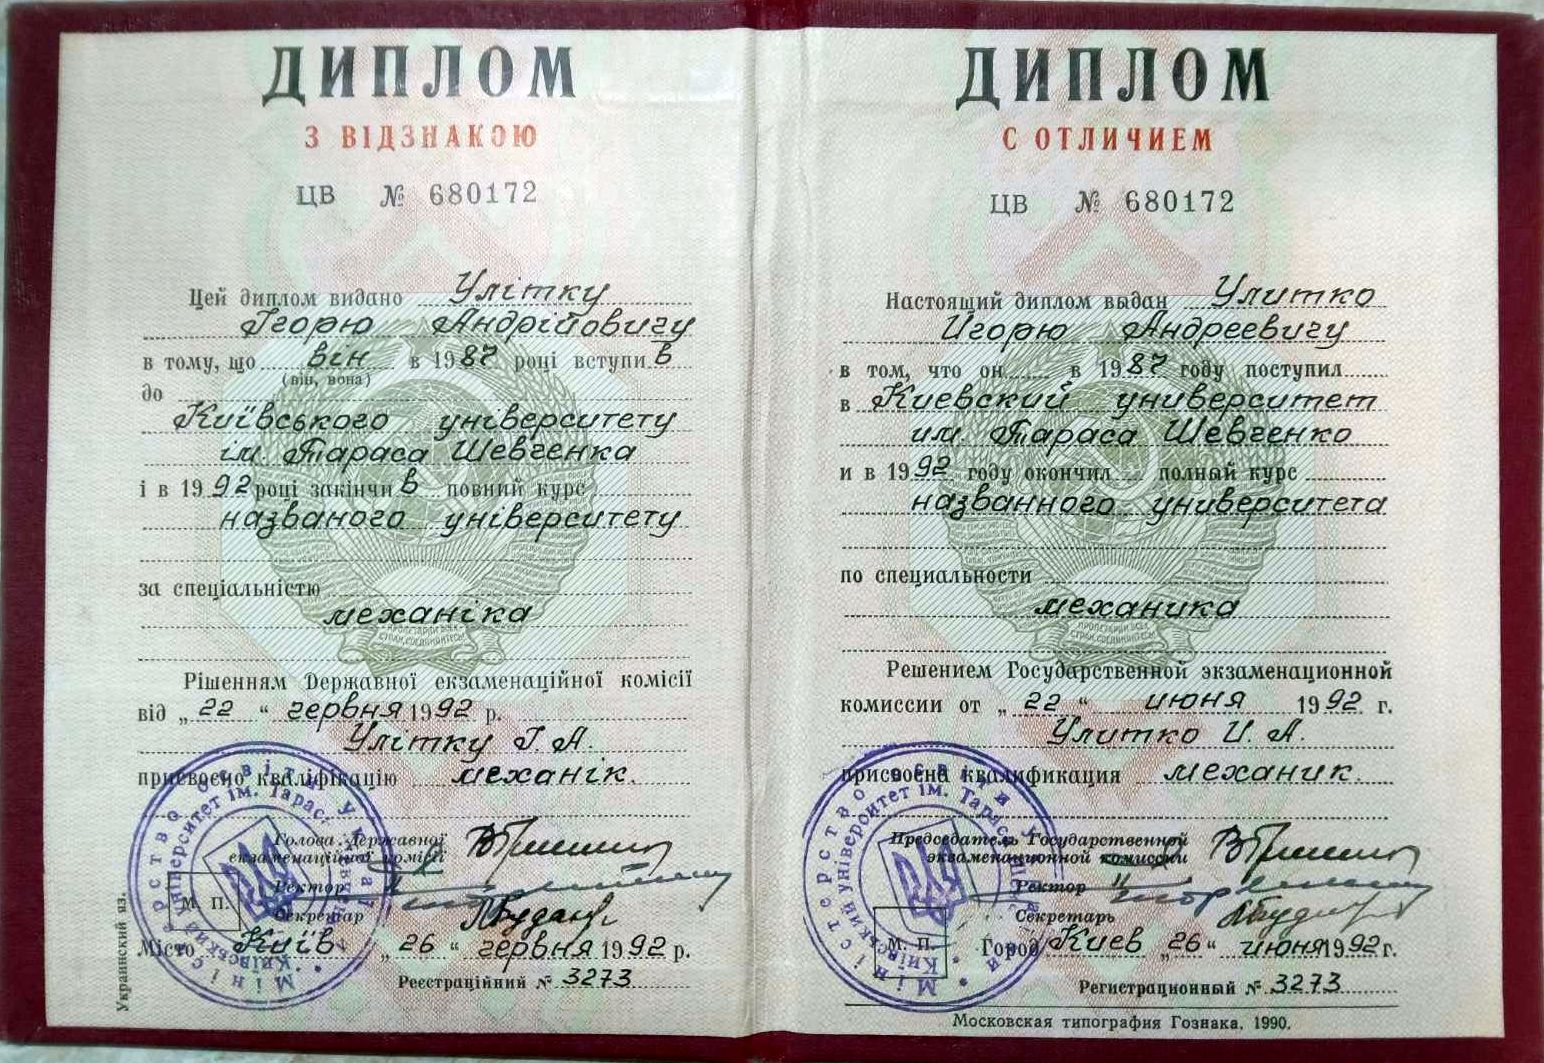 ДИПЛОМ
З ВІДЗНАКОЮ
ЦВ № 680172
Цей диплом видано Улітку
Ігорю Андрійовичу
в тому, що він в 1987 році вступив
(він, вона)
до
Київського університету
ім. Тараса Шевченка
і в 1992 році закінчив повний курс
названого університету
за спеціальністю
механіка
Рішенням Державної екзаменаційної комісії
від „22“ червня 1992 р.
Улітку І. А.
присвоєно кваліфікацію механік.
Голова Державної
екзаменаційної комісії
Ректор
М. П.
Секретар
Місто Київ „26“ червня 1992 р.
Реєстраційний № 3273
Украинский яз.
Міністерство освіти України
Київський університет ім. Тараса
ДИПЛОМ
С ОТЛИЧИЕМ
ЦВ № 680172
Настоящий диплом выдан Улитко
Игорю Андреевичу
в том, что он в 1987 году поступил
в Киевский университет
им. Тараса Шевченко
и в 1992 году окончил полный курс
названного университета
по специальности
механика
Решением Государственной экзаменационной
комиссии от „22“ июня 1992 г.
Улитко И. А.
присвоена квалификация механик.
Председатель Государственной
экзаменационной комиссии
Ректор
Секретарь
М. П.
Город Киев „26“ июня 1992 г.
Регистрационный № 3273
Московская типография Гознака. 1990.
Міністерство освіти України
Київський університет ім. Тараса